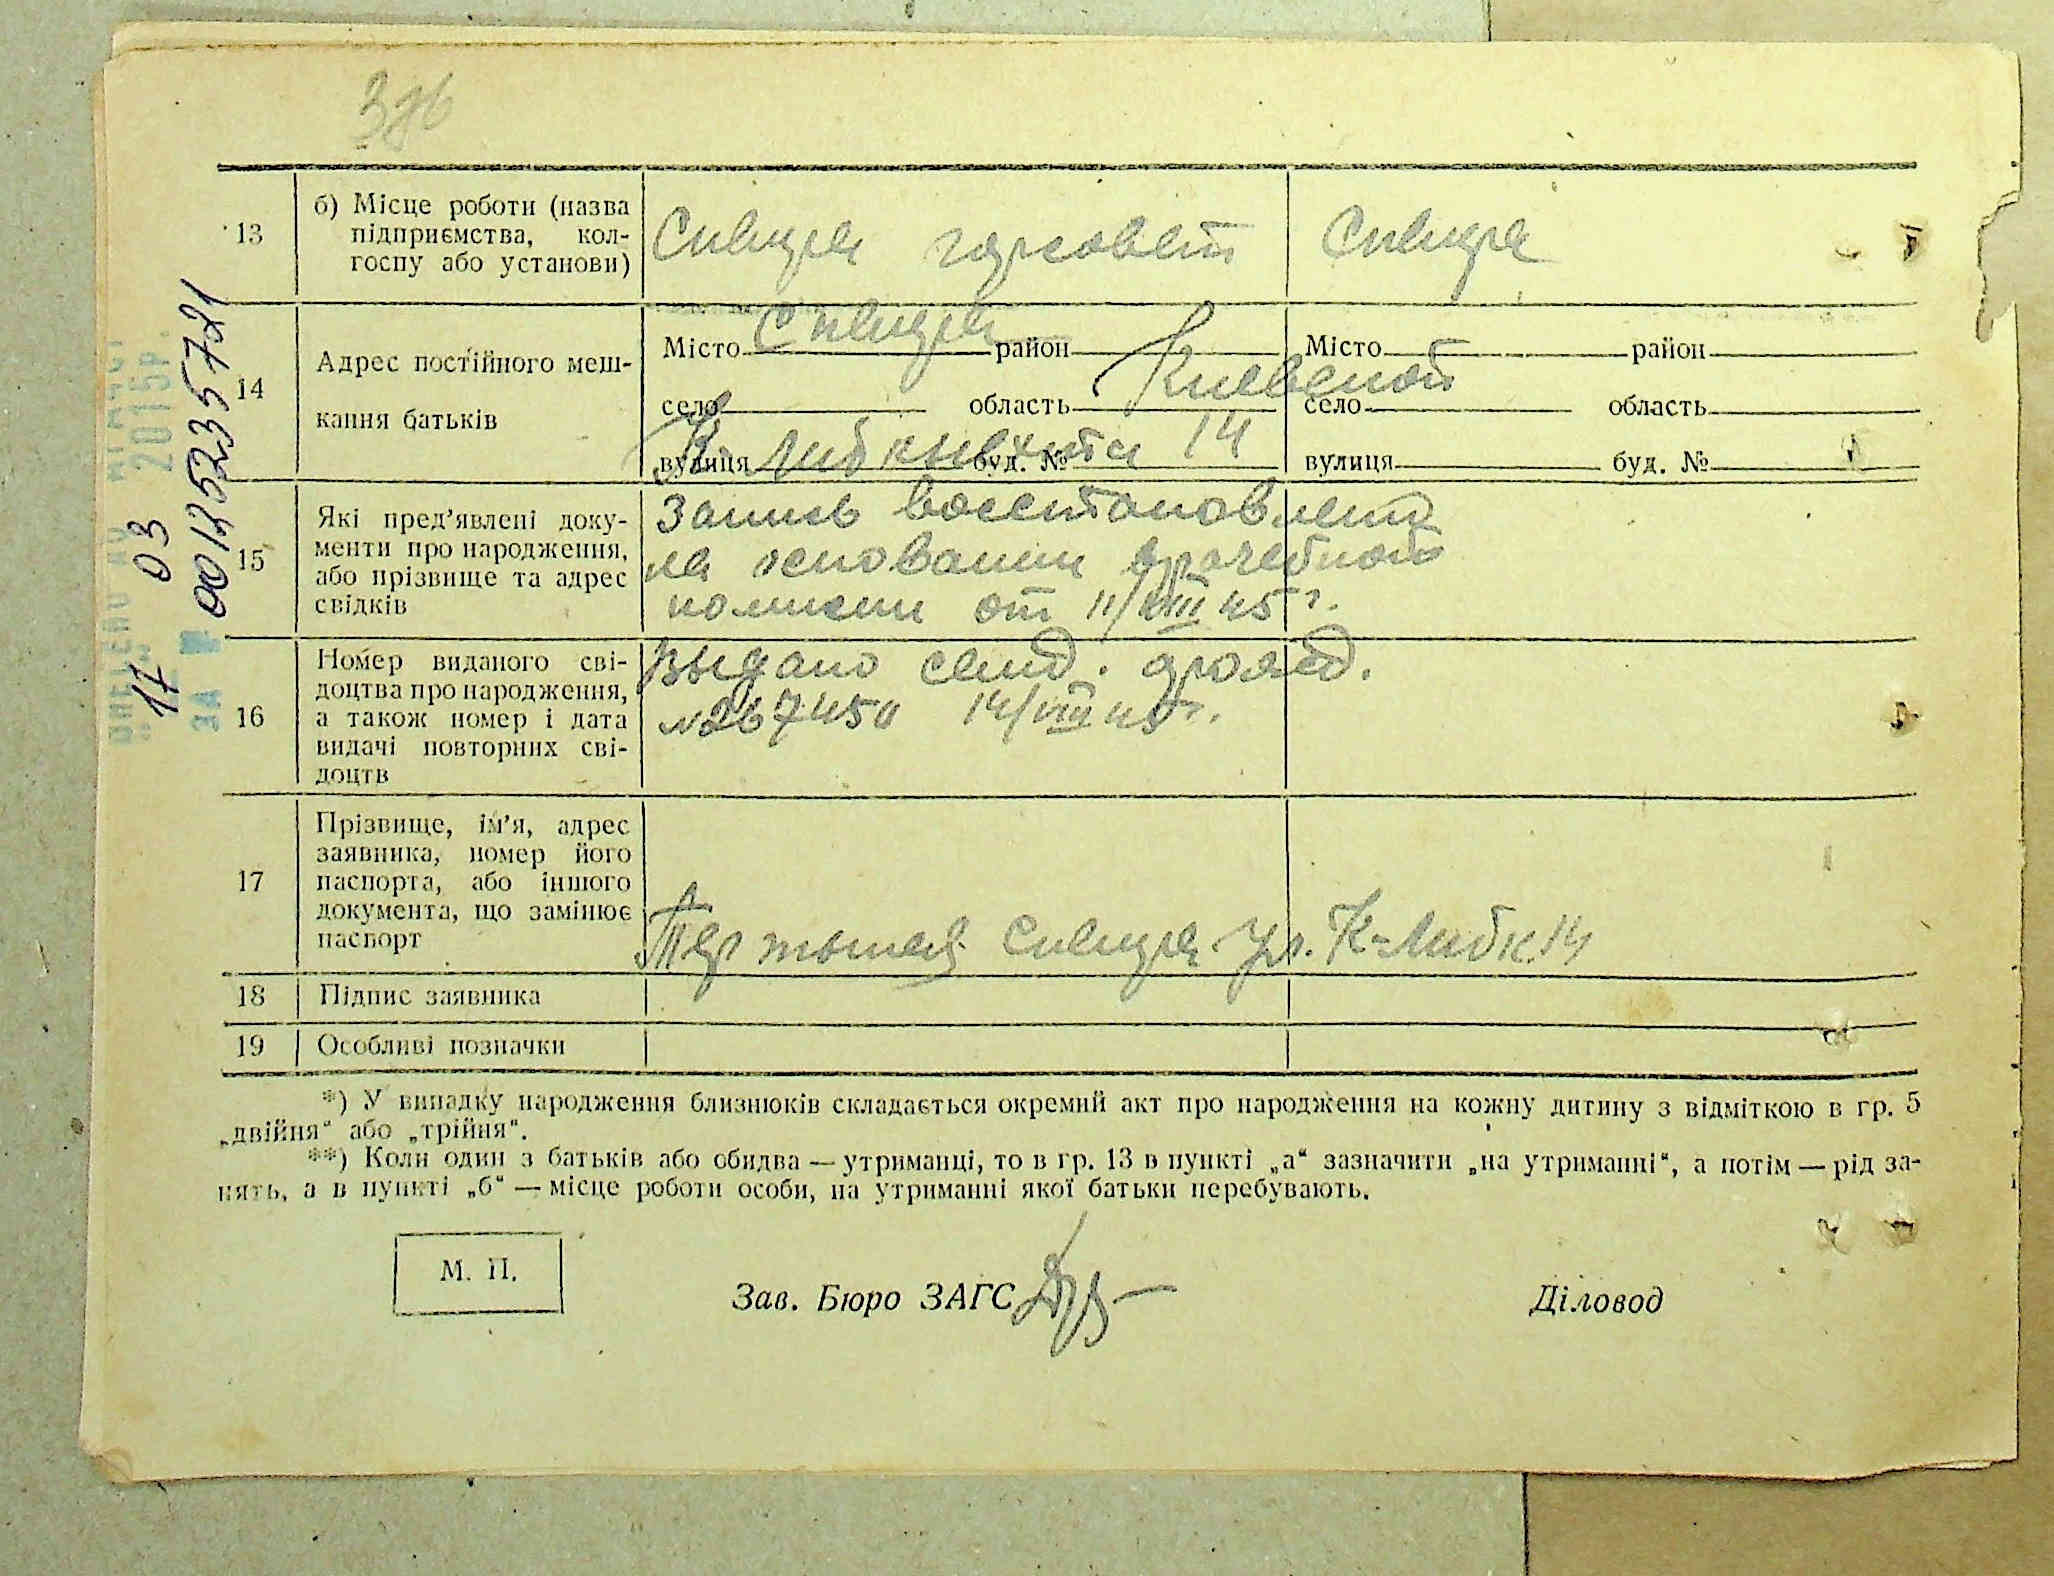 13
б) Місце роботи (назва
підприємства, кол-
госпу або установи)
Сквира горсовет
Сквира
14
Адрес постійного меш-
кання батьків
Місто Сквира район
Місто район
село область Киевской
село область
вулиця К. Либкнехта буд. № 14
вулиця буд. №
15
Які пред’явлені доку-
менти про народження,
або прізвище та адрес
свідків
Запись восстановлена
на основании врачебной
комисии от 11/VIII 45 г.
16
Номер виданого сві-
доцтва про народження,
а також номер і дата
видачі повторних сві-
доцтв
Выдано свид.
14/VIII 45 г.
17
Прізвище, ім’я, адрес
заявника, номер його
паспорта, або іншого
документа, що замінює
паспорт
Сквира ул. К-Либк. 14
18
Підпис заявника
19
Особливі позначки
*) У випадку народження близнюків складається окремий акт про народження на кожну дитину з відміткою в гр. 5
„двійня“ або „трійня“.
**) Коли один з батьків або обидва — утриманці, то в гр. 13 в пункті „а“ зазначити „на утриманні“, а потім — рід за-
нять, а в пункті „б“ — місце роботи особи, на утриманні якої батьки перебувають.
М. П.
Зав. Бюро ЗАГС
Діловод
17 03 2015р.
ЗА № 00125235721